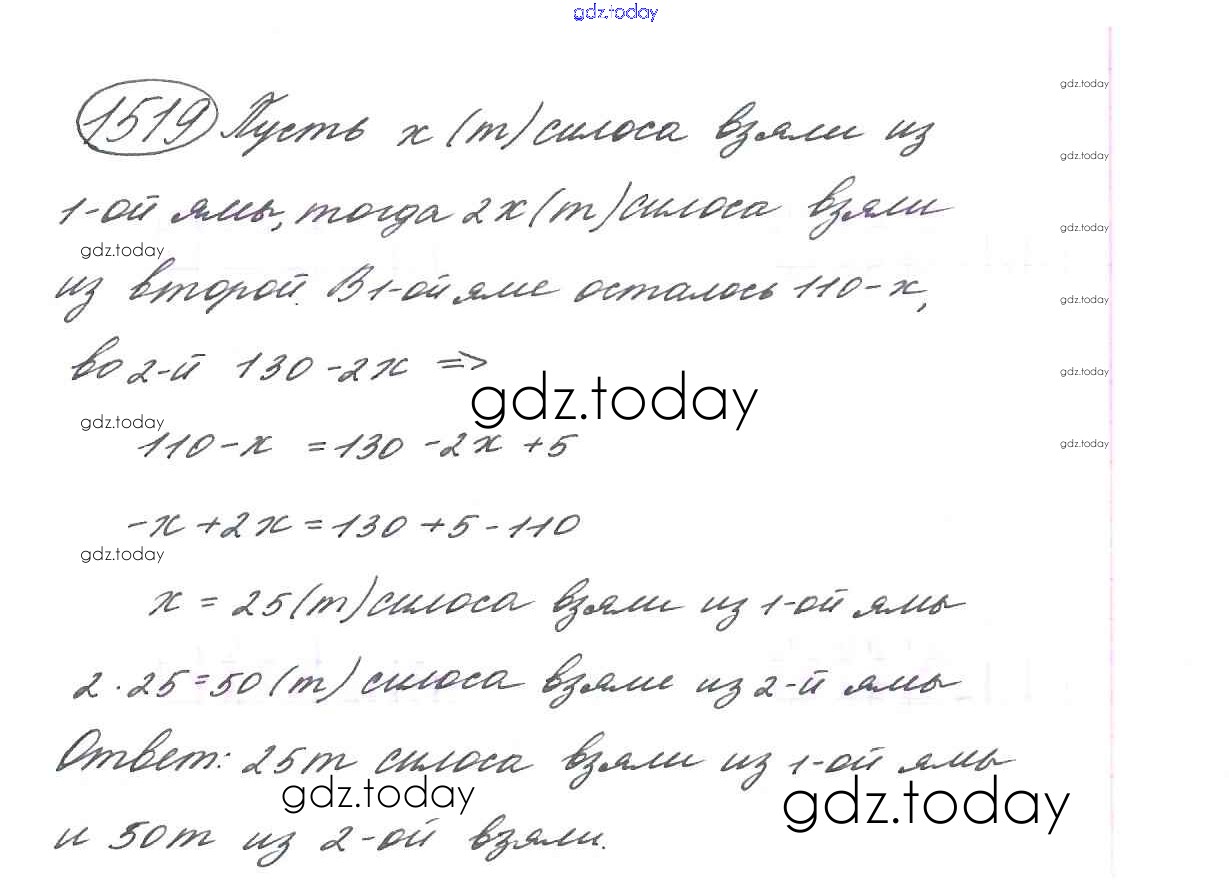 gdz.today
gdz.today
1519 Пусть x (т) силоса взяли из
gdz.today
1-ой ямы, тогда 2x (т) силоса взяли
gdz.today
gdz.today
из второй. В 1-ой яме осталось 110 - x,
gdz.today
во 2-й 130 - 2x =>
gdz.today
gdz.today
gdz.today
110 - x = 130 - 2x + 5
gdz.today
-x + 2x = 130 + 5 - 110
gdz.today
x = 25 (т) силоса взяли из 1-ой ямы
2 · 25 = 50 (т) силоса взяли из 2-й ямы
Ответ: 25 т силоса взяли из 1-ой ямы
gdz.today
gdz.today
и 50 т из 2-ой взяли.